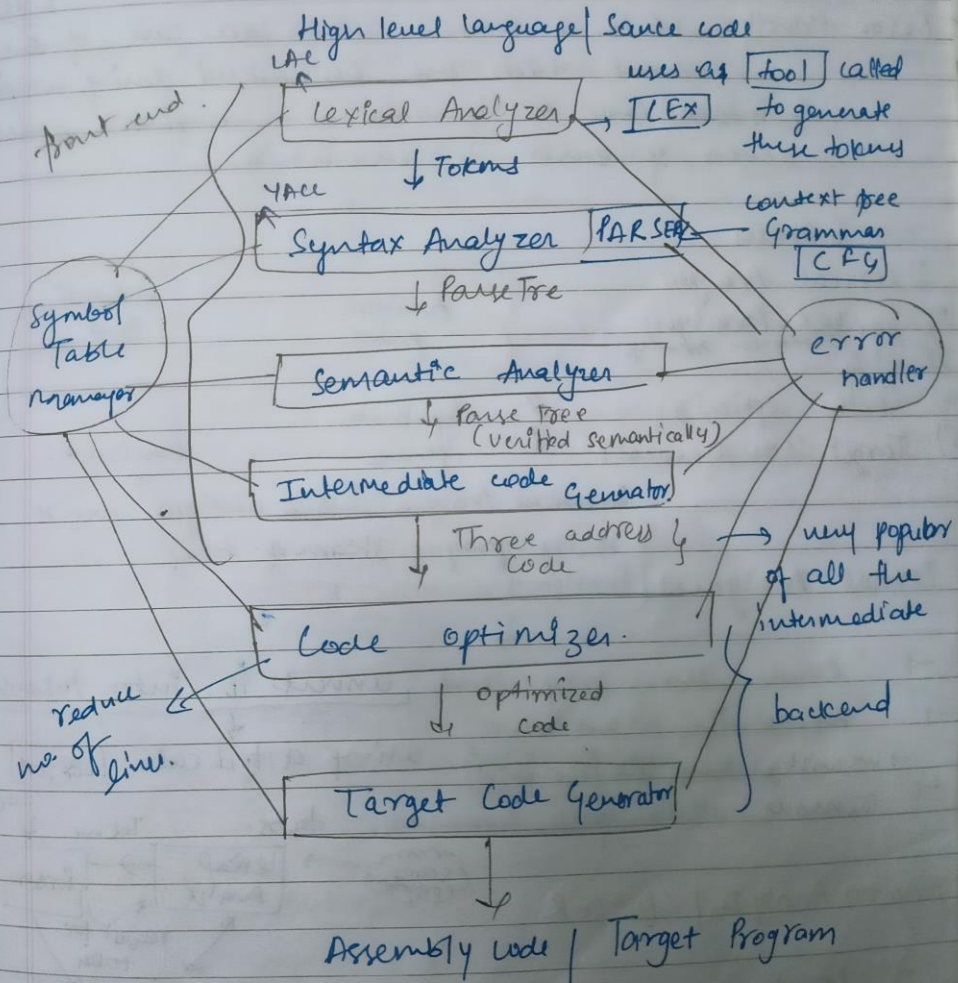 High level language / Source code
LAC
uses as tool called
Lexical Analyzer
LEX
to generate
these tokens
front end.
Tokens
YACC
Syntax Analyzer PARSER
context free
Grammar
CFG
Parse Tre
Symbol
Table
error
handler
Semantic Analyzer
Parse Tree
(verified semantically)
Intermediate code Generator
Three address
Code
very popular
of all the
intermediate
Code optimizer.
reduce
no. of
lines.
optimized
Code
backend
Target Code Generator
Assembly code / Target Program